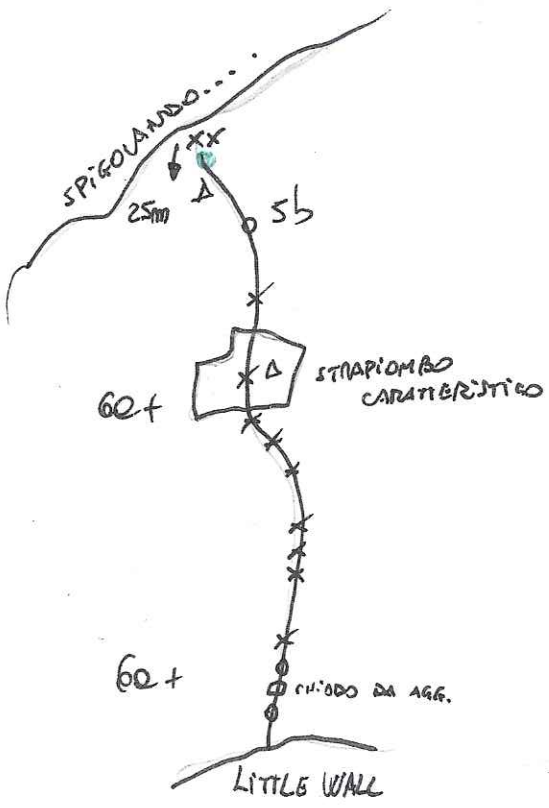 SPIGOLANDO.....
XX
25m
5b
STRAPIOMBO
CARATTERISTICO
6a+
6a+
CHIODO DA AGG.
LITTLE WALL